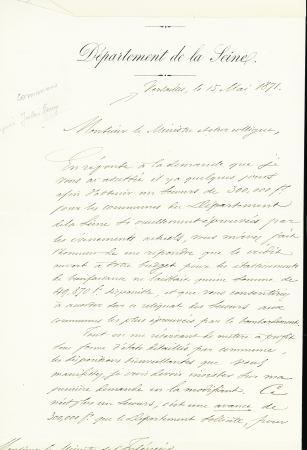 Département de la Seine.
Versailles, le 15 Mai 1871.
Monsieur le Ministre et cher collègue,
En réponse à la demande que je
vous ai adressée il y a quelques jours
afin d'obtenir un secours de 300,000 f.
pour les communes du Département
de la Seine si cruellement éprouvées par
les événements actuels, vous m'avez fait
l'honneur de me répondre que le crédit
ouvert à votre budget pour les établissements
de bienfaisance ne laissait qu'une somme de
49,870 f. disponible et que vous consentiriez
à à ce reliquat des secours aux
communes les plus éprouvées par le bombardement.
Tout en me réservant de mettre à profit
sous forme d'états détaillés par commune,
les dispositions bienveillantes que
manifestez, je crois devoir insister sur ma
première demande en la modifiant. Ce
n'est plus un secours, c'est une avance de
300,000 f. que le Département sollicite, pour
Monsieur le Ministre de l'Intérieur